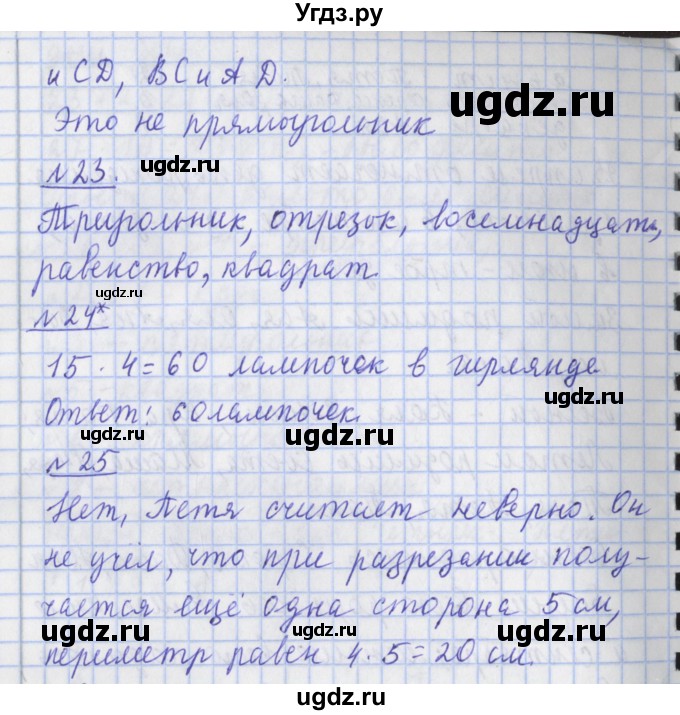 Угдз.ру
и CD, BC и AD.
ugdz.ru
Это не прямоугольник
№23. ugdz.ru
Треугольник, отрезок, восемнадцать,
равенство, квадрат.
ugdz.ru
№24*
15 · 4 = 60 лампочек в гирлянде
Ответ: 60 лампочек.
ugdz.ru ugdz.ru
№25
Нет, Петя считает неверно. Он
не учёл, что при разрезании полу-
чается ещё одна сторона 5 см,
ugdz.ru ugdz.ru
периметр равен 4 · 5 = 20 см.
ugdz.ru